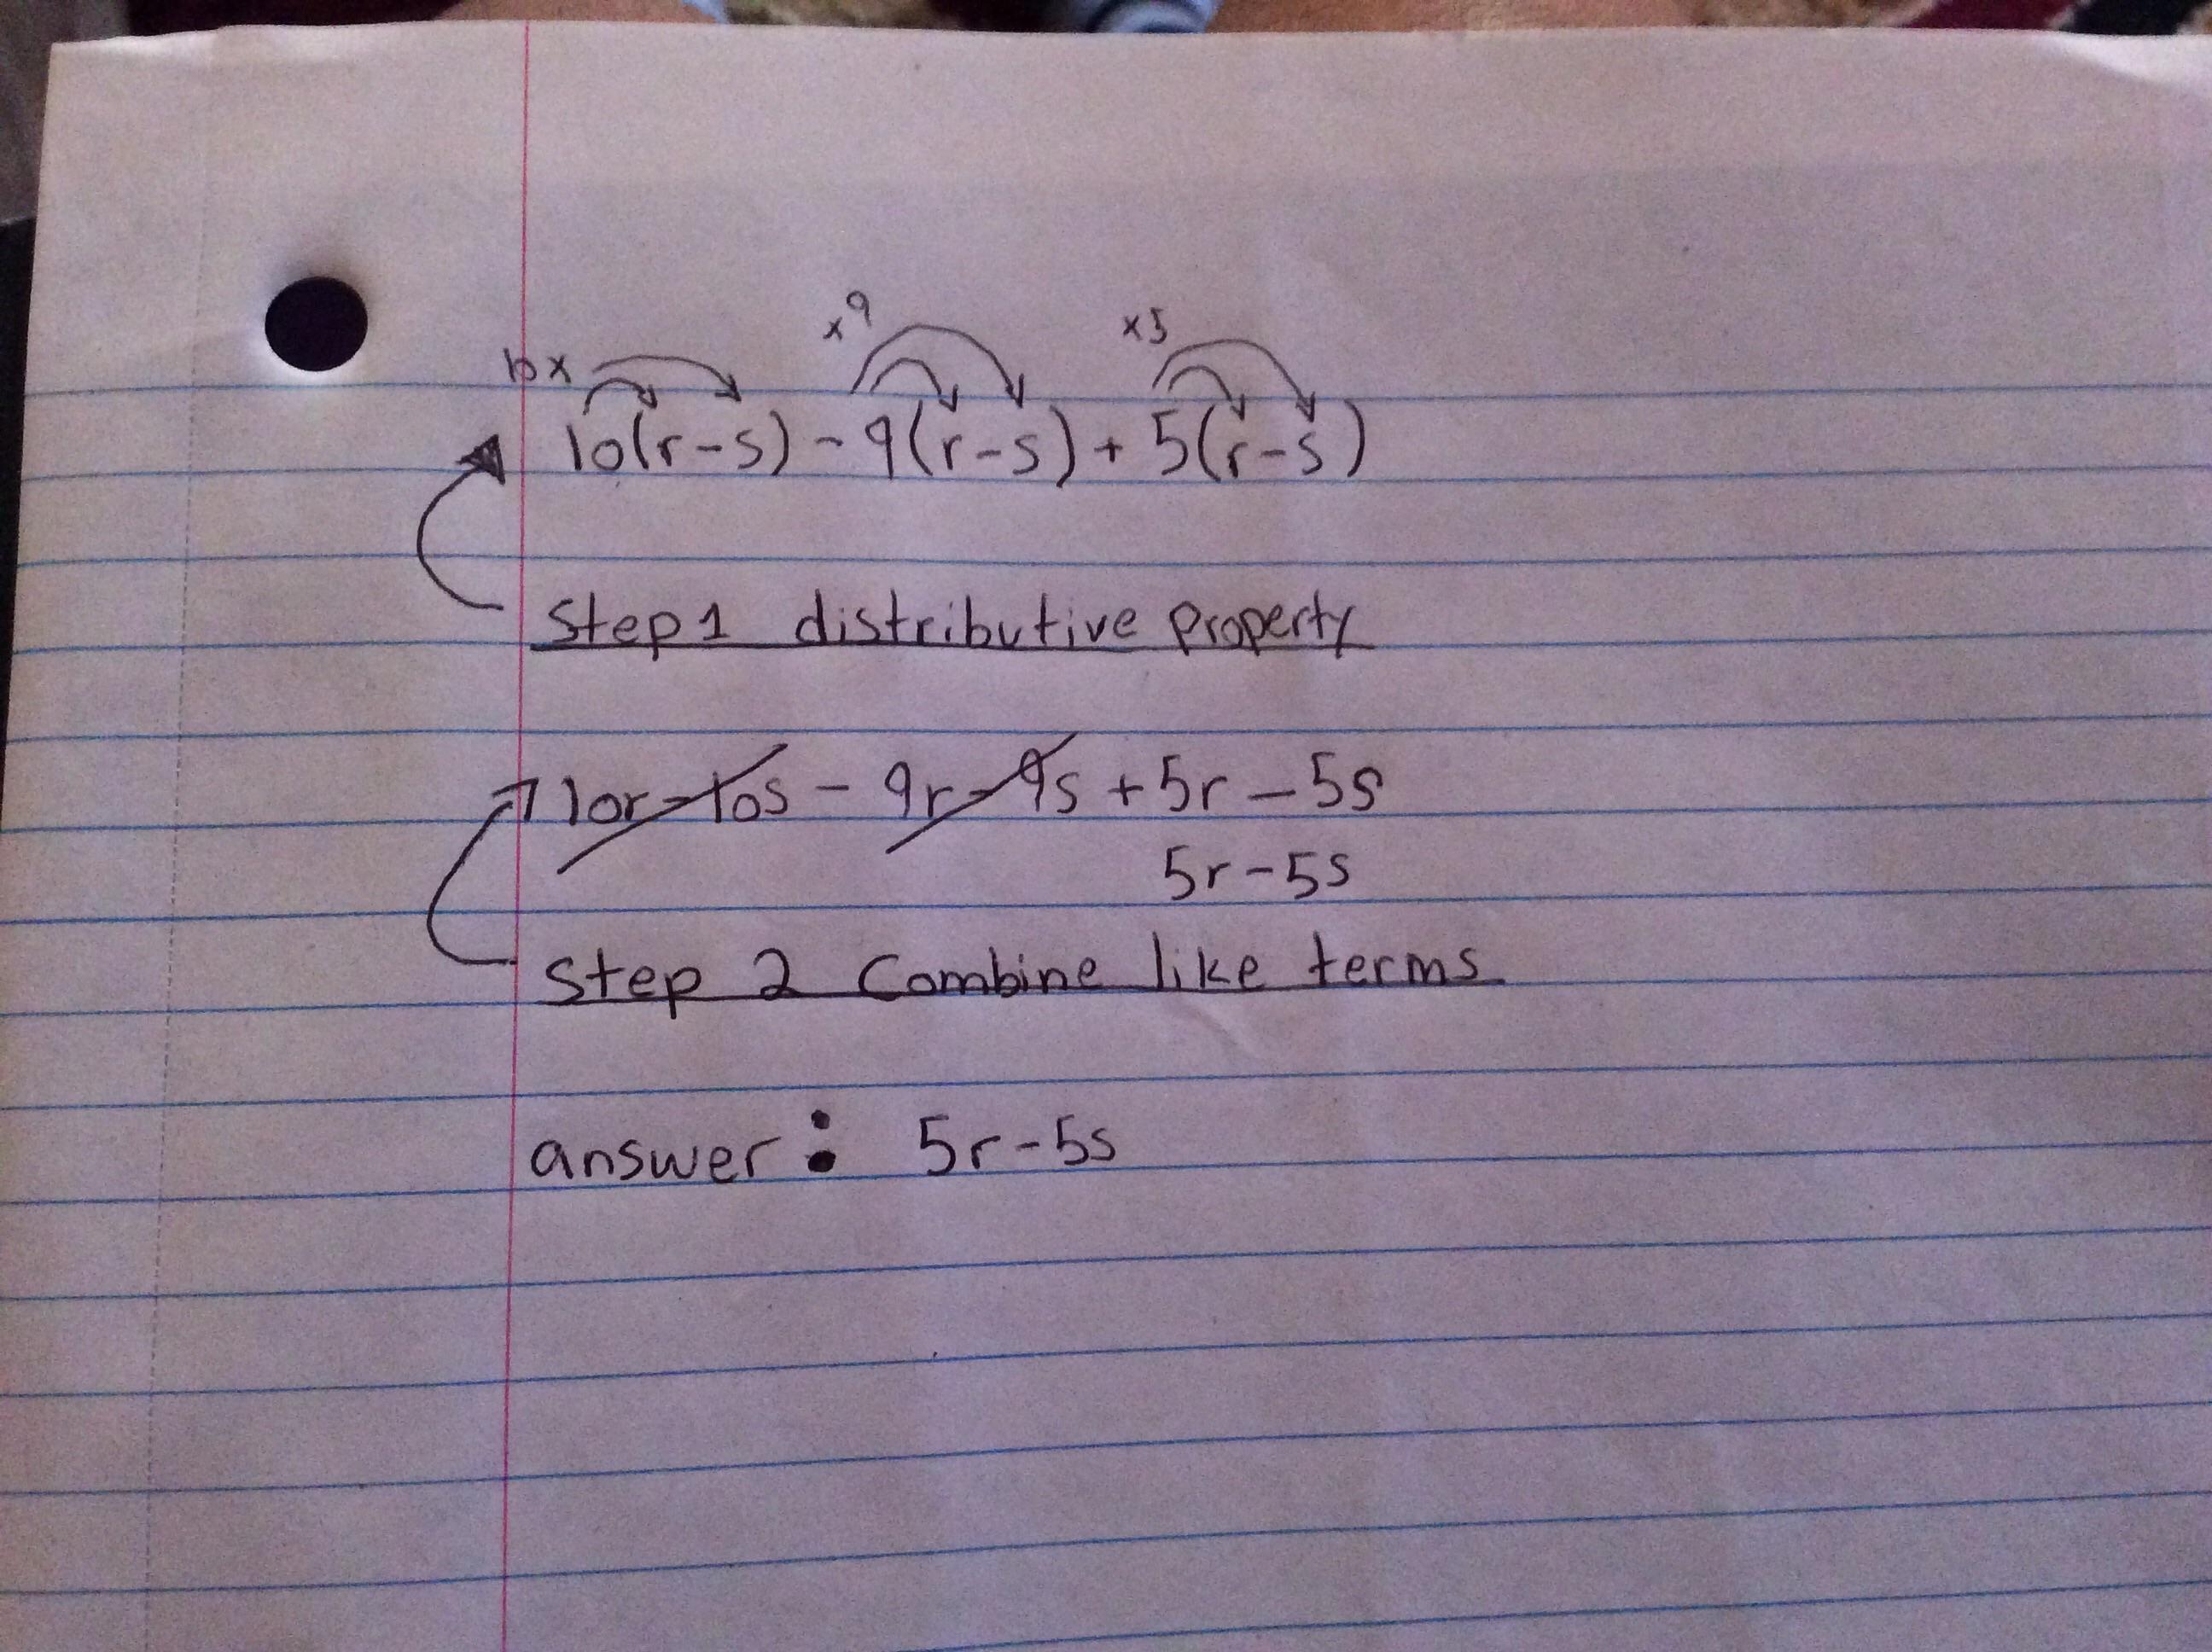 10x x9 x5
10(r-s) - 9(r-s) + 5(r-s)
Step 1 distributive property
10r-10s - 9r-9s +5r - 5s
5r-5s
Step 2 Combine like terms
answer: 5r-5s